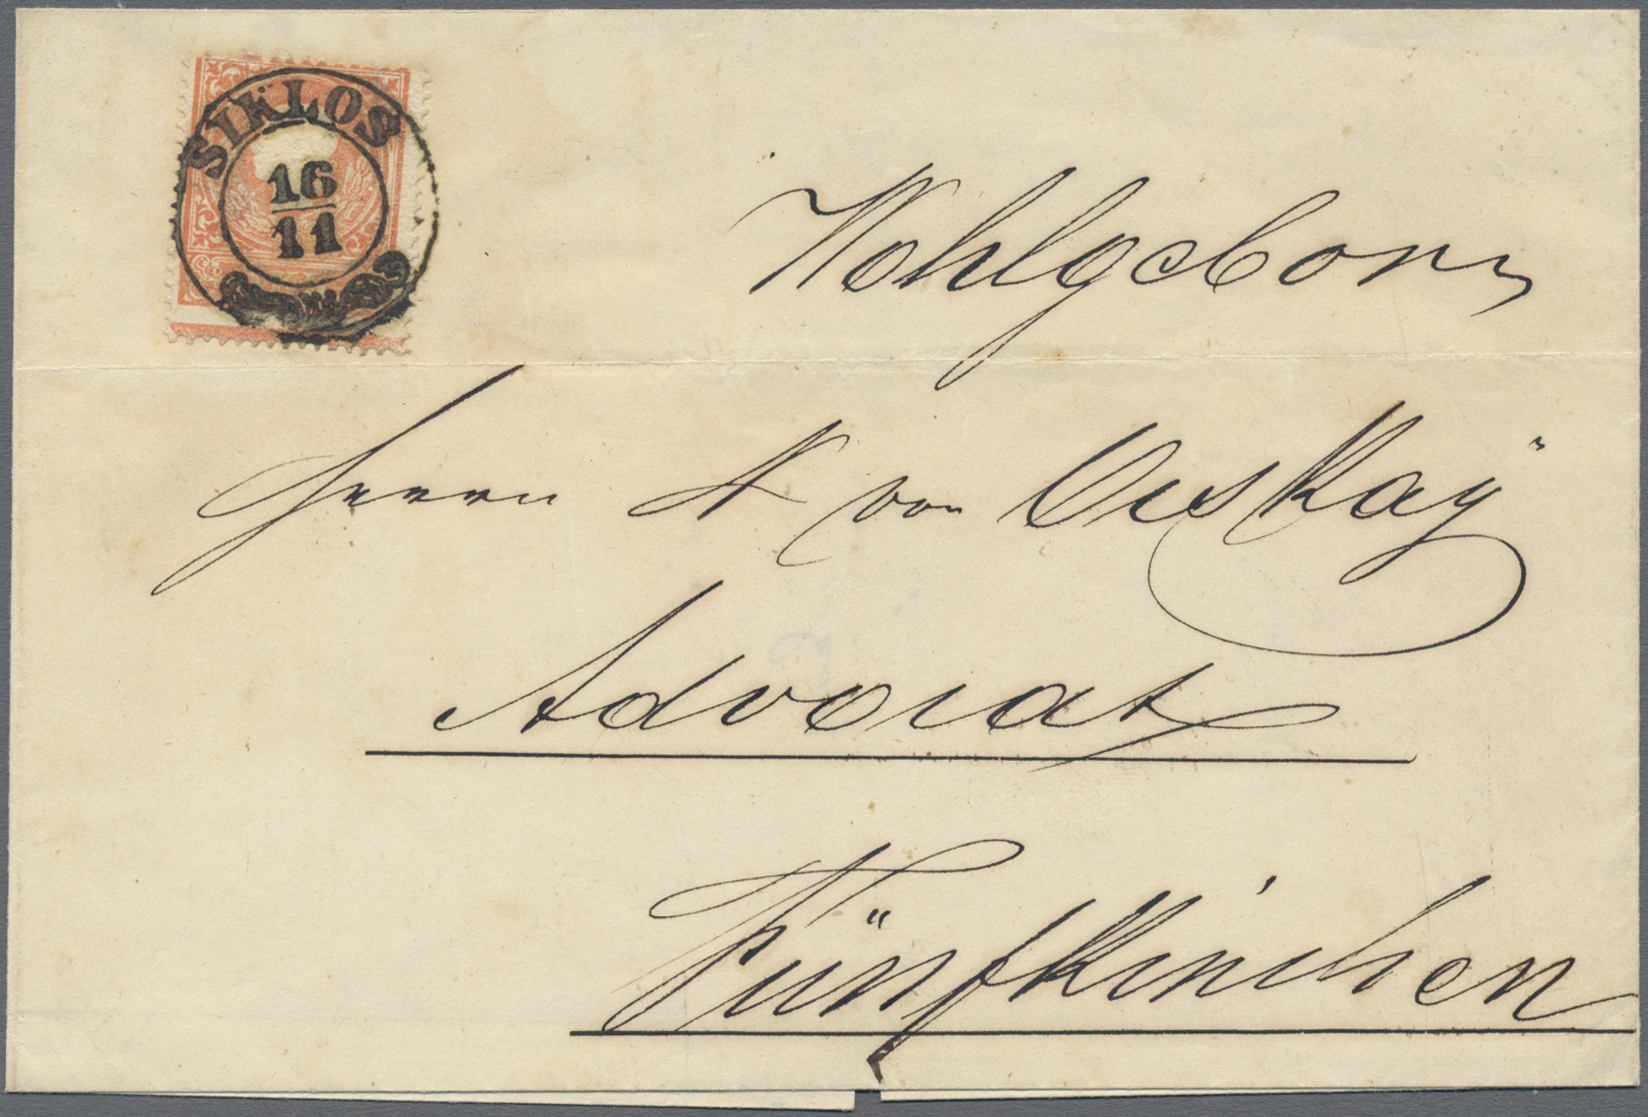 SIKLOS
16
11
Wohlgeborn
Herrn A von Üskaÿ
Advocat
Fünfkirchen